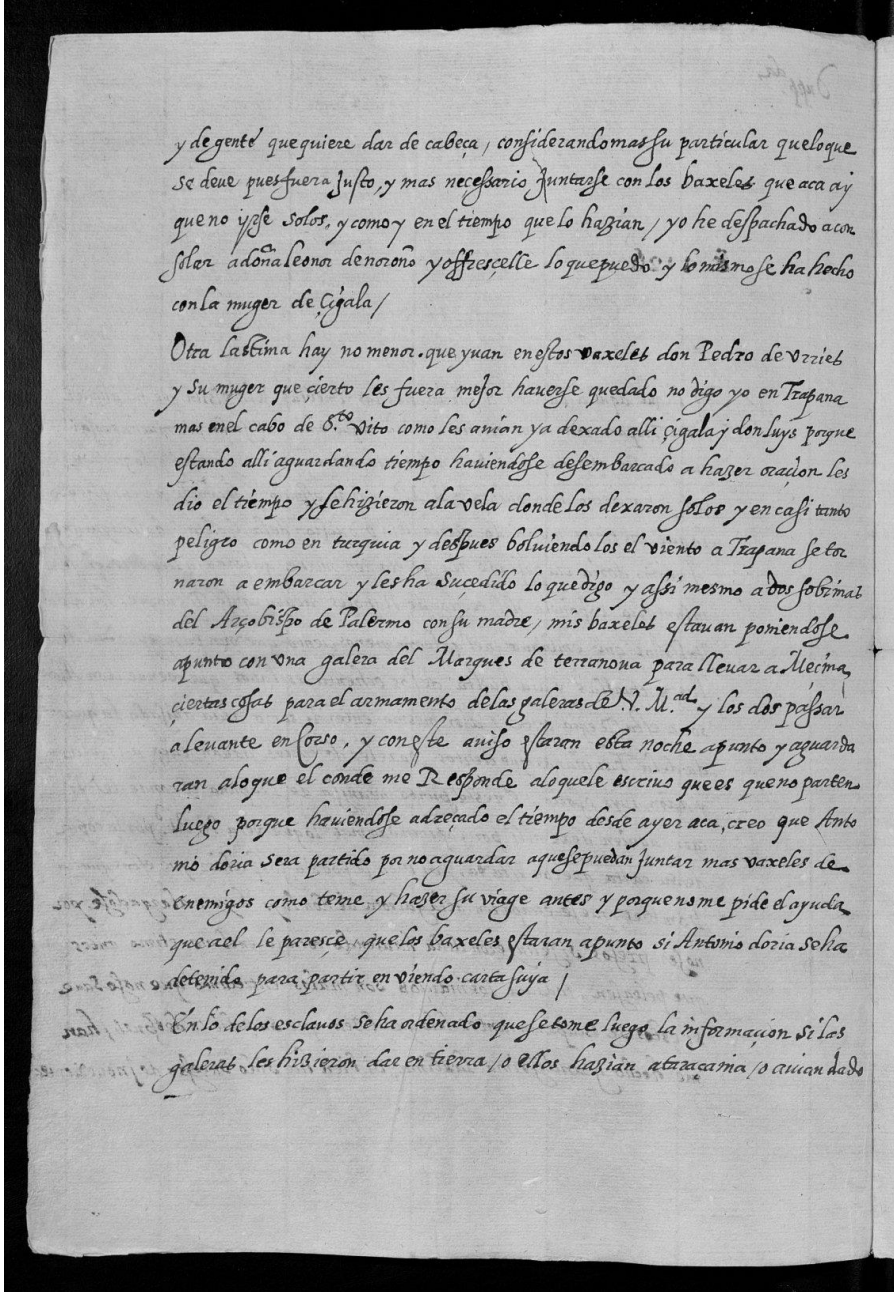 y de gente que quiere dar de cabeça, considerando mas su particular que lo que
se deve pues fuera Justo, y mas necessario Juntarse con los baxeles que aca ay
que no yrse solos, y como y en el tiempo que lo hazian / yo he despachado a con
solar a doña leonor de noroño y offresçelle lo que puedo y lo mismo se ha hecho
con la muger de Çigala /
Otra lastima hay no menor. que yuan en estos vaxeles don Pedro de Vrries
y su muger que çierto les fuera mejor haverse quedado no digo yo en Trapana
mas en el cabo de S.to Vito como les avian ya dexado alli Çigala y don luys porque
estando alli aguardando tiempo haviendose desembarcado a hazer oraçion les
dio el tiempo y se hizieron a la vela donde los dexaron solos y en casi tanto
peligro como en turquia y despues bolviendolos el viento a Trapana se tor
naron a embarcar y les ha suçedido lo que digo y assi mesmo a dos sobrinas
del Arçobispo de Palermo con su madre, mis baxeles estavan poniendose
a punto con una galera del Marques de terranova para llevar a Meçina
çiertas cosas para el armamento de las galeras de V. M.ad y los dos passar
a levante en Corso, y con este aviso estaran esta noche a punto y aguarda
ran a lo que el conde me Responde a lo que le escrivo que es que no parten
luego porque haviendose adreçado el tiempo desde ayer aca, creo que Anto
nio doria sera partido por no aguardar a que se puedan Juntar mas vaxeles de
enemigos como teme y hazer su viage antes y porque no me pide el ayuda
que a el le paresçe que los baxeles estaran a punto si Antonio doria se ha
detenido para partir en viendo carta suya /
En lo de los esclavos se ha ordenado que se tome luego la informaçion si las
galeras les hizieron dar en tierra / o ellos hazian ataraçama / o avian dado